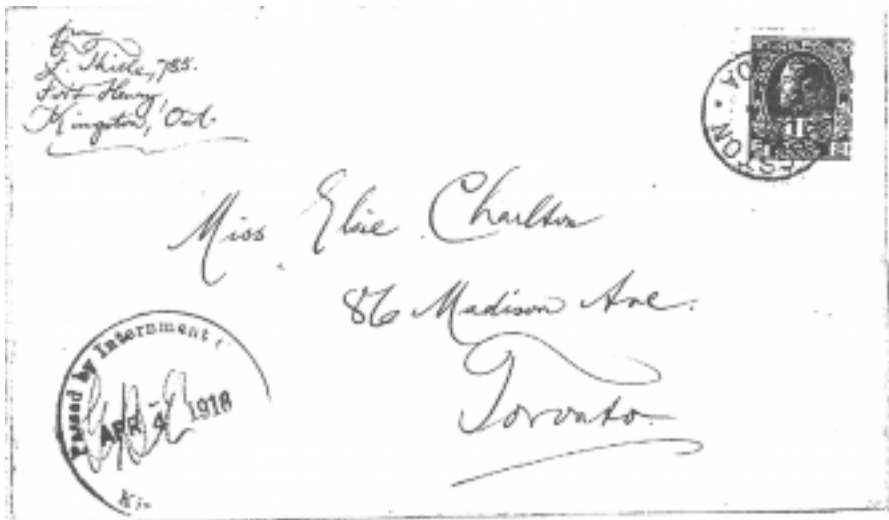 from
F. Thiele, 785.
Fort Henry,
Kingston, Ont.
Miss Elsie Charlton
86 Madison Ave.
Toronto
Passed by Internment
APR 4 1916
Ki
1